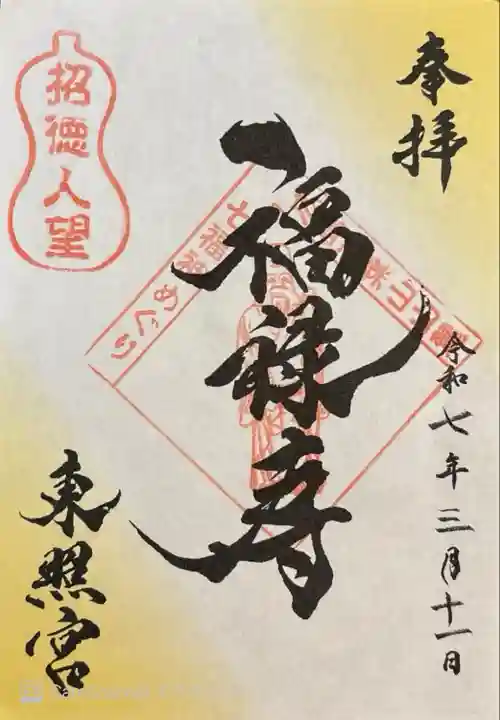 奉拝
福禄寿
令和七年三月十一日
東照宮
招徳人望
七福神
めぐり